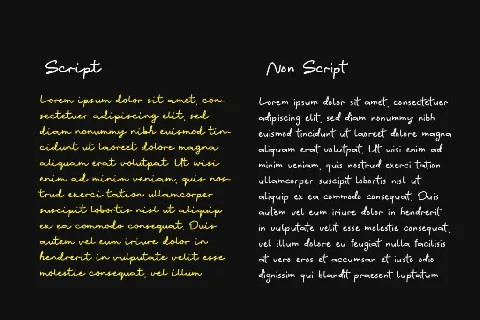 Script
Lorem ipsum dolor sit amet, con-
sectetuer adipiscing elit, sed
diam nonummy nibh euismod tin-
cidunt ut laoreet dolore magna
aliquam erat volutpat. Ut wisi
enim ad minim veniam, quis nos-
trud exerci tation ullamcorper
suscipit lobortis nisl ut aliquip
ex ea commodo consequat. Duis
autem vel eum iriure dolor in
hendrerit in vulputate velit esse
molestie consequat, vel illum
Non Script
Lorem ipsum dolor sit amet, consectetuer
adipiscing elit, sed diam nonummy nibh
euismod tincidunt ut laoreet dolore magna
aliquam erat volutpat. Ut wisi enim ad
minim veniam, quis nostrud exerci tation
ullamcorper suscipit lobortis nisl ut
aliquip ex ea commodo consequat. Duis
autem vel eum iriure dolor in hendrerit
in vulputate velit esse molestie consequat,
vel illum dolore eu feugiat nulla facilisis
at vero eros et accumsan et iusto odio
dignissim qui blandit praesent luptatum